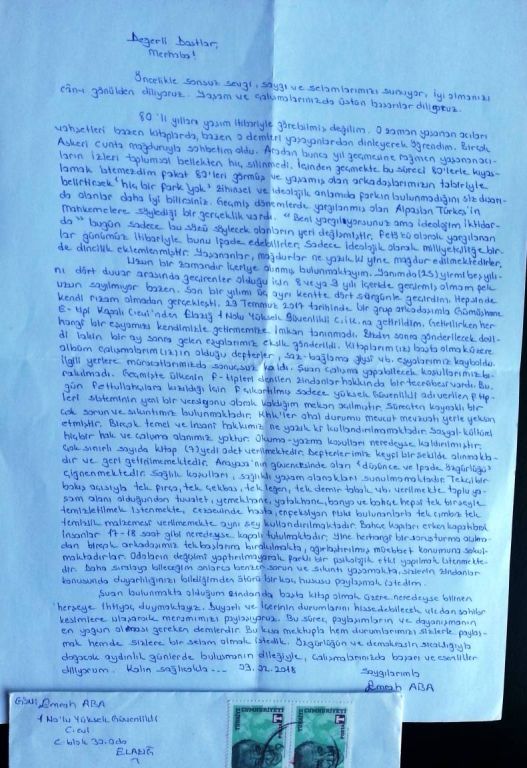 Değerli Dostlar,
Merhaba!
Öncelikle sonsuz sevgi, saygı ve selamlarımızı sunuyor, iyi olmanızı
cân-ı gönülden diliyoruz. Yaşam ve çalışmalarınızda üstün başarılar diliyoruz.
80'li yılları yaşım itibariyle görebilmiş değilim. O zaman yaşanan acıları
vahşetleri bazen kitaplarda, bazen o demleri yaşayanlardan dinleyerek öğrendim. Birçok
Askeri cunta mağduruyla sohbetim oldu. Aradan bunca yıl geçmesine rağmen yaşananacı-
ların izleri toplumsal bellekten hiç silinmedi. İçinden geçmekte bu süreci 80'lerle kıyas-
lamak istemezdim fakat 80'leri görmüş ve yaşamış olan arkadaşlarımızın tabiriyle
belirtirsek "hiç bir fark yok" zihinsel ve ideolojik anlamda farkın bulunmadığını siz dışarı-
da olanlar daha iyi bilirsiniz. Geçmiş dönemlerde yargılanmış olan Alpaslan Türkeş'in
Mahkemelere söylediği bir gerçeklik vardı. "Beni yargılıyorsunuz ama ideolojim iktidar-
da" bugün sadece bu sözü söylecek olanların yeri değişmiştir. Fetö'cü olarak yargılanan-
lar günümüz itibariyle bunu ifade edebilirler. Sadece ideolojik olarak milliyetçiliğe bir-
de dincilik eklemlenmiştir. Yaşananlar, mağdurlar ne yazık ki yine mağdur edilmektedirler.
Uzun bir zamandır içeriye alınmış bulunmaktayım. Yanımda (25) yirmi beş yılı-
nı dört duvar arasında geçirenler olduğu için 8 veya 9 yılı içerde geçirmiş olmam pek
uzun sayılmıyor bazen. Son bir yılımı üç ayrı kentte dört sürgünle geçirdim. Hepside
kendi rızam olmadan gerçekleşti. 23 Temmuz 2017 tarihinde bir grup arkadaşımla Gümüşhane
E-tipi Kapalı C.evi'nden Elazığ 1 Nolu Yüksek Güvenlikli C.İ.K.na getirildim. Getirilirken her-
hangi bir eşyamızı kendimizle getirmemize imkan tanınmadı. Sizden sonra gönderilecek denil-
di lakin bir ay sonra gelen eşyalarımız eksik gönderildi. Kitaplarım(ız) başta olmak üzere
albüm çalışmalarım(ız)ın olduğu defterler, saz-bağlama giysi vb. eşyalarımız kayboldu.
ilgili yerlere müracaatlarımızda sonuçsuz kaldı. Şuan çalışma yapabilecek koşullarımız bı-
rakılmadı. Geçmişte ülkenin F-tipleri denilen zindanlar hakkında bir tecrübesi vardı. Bu-
gün Fetullahçılara kızıldığı için F çıkartılmış sadece yüksek Güvenlikli adı verilen F tip-
leri sisteminin yeni bir versiyonu olarak kaldığım mekan açılmıştır. Süreçten kaynaklı bir
çok sorun ve sıkıntımız bulunmaktadır. Khk'ler ohal durumu mevcut mevzuatı yerle yeksan
etmiştir. Birçok temel ve insani hakkımız ne yazık ki kullandırılmamaktadır. Sosyal-kültürel
hiçbir hak ve çalışma alanımız yoktur. Okuma-yazma koşulları neredeyse kaldırılmıştır.
Çok sınırlı sayıda kitap (7) yedi adet verilmektedir. Defterlerimiz keyfi bir şekilde alınmakta-
dır ve geri getirilmemektedir. Anayasa'nın güvencesinde olan "düşünce ve ifade özgürlüğü"
çiğnenmektedir. Sağlık koşulları, sağlıklı yaşam olanakları sunulmamaktadır. Tekçi bir
bakış açısıyla tek fırça, tek çekbas, tek leğen, tek demir tabak vb. verilmekte toplu ya-
şam alanı olduğundan tuvalet, yemekhane, yatakhane, banyo ve bahçe hepsi tek bir şeyle
temizletilmek istenmekte, cezaevinde hasta, enfeksiyon riski bulunanlarla tek çımbız tek
temizlik malzemesi verilmemekte aynı şey kullandırılmaktadır. Bahçe kapıları erken kapatılmak
insanlar 17-18 saat gibi neredeyse kapalı tutulmaktadır. Yine herhangi bir soruşturma olma-
dan birçok arkadaşımız tek başlarına bırakılmakta, ağırlaştırılmış müebbet konumuna sokul-
maktadırlar. Odaların değişimi yaptırılmayarak farklı bir psikolojik etki yapılmak istenmekte-
dir. Daha sıralaya bileceğim onlarca benzer sorun ve sıkıntı yaşamakta, sizlerin zindanlar
konusunda duyarlılığınızı bildiğimden ötürü bir kaç hususu paylaşmak istedim.
Şuan bulunmakta olduğum zindanda başta kitap olmak üzere neredeyse bilinen
herşeye ihtiyaç duymaktayız. Duyarlı ve içerinin durumlarını hissedebilecek vicdan sahibi
kesimlere ulaşarak meramımızı paylaşıyoruz. Bu süreç, paylaşımların ve dayanışmanın
en yoğun olması gereken demlerdir. Bu kısa mektupla hem durumlarımızı sizlerle paylaş-
mak hemde sizlere bir selam olmak istedik. Özgürlüğün ve demokrasin sıcaklığıyla
doğacak aydınlık günlerde buluşmanın dileğiyle, çalışmalarınızda başarı ve esenlikler
diliyorum. Kalın sağlıcakla... 03.02.2018
Saygılarımla
Emrah ABA
Gön: Emrah ABA
1 No'lu Yüksek Güvenlikli
C.evi
C-blok 30.Oda
ELAZIĞ
TÜRKİYE CUMHURİYETİ
TÜRKİYE CUMHURİYETİ